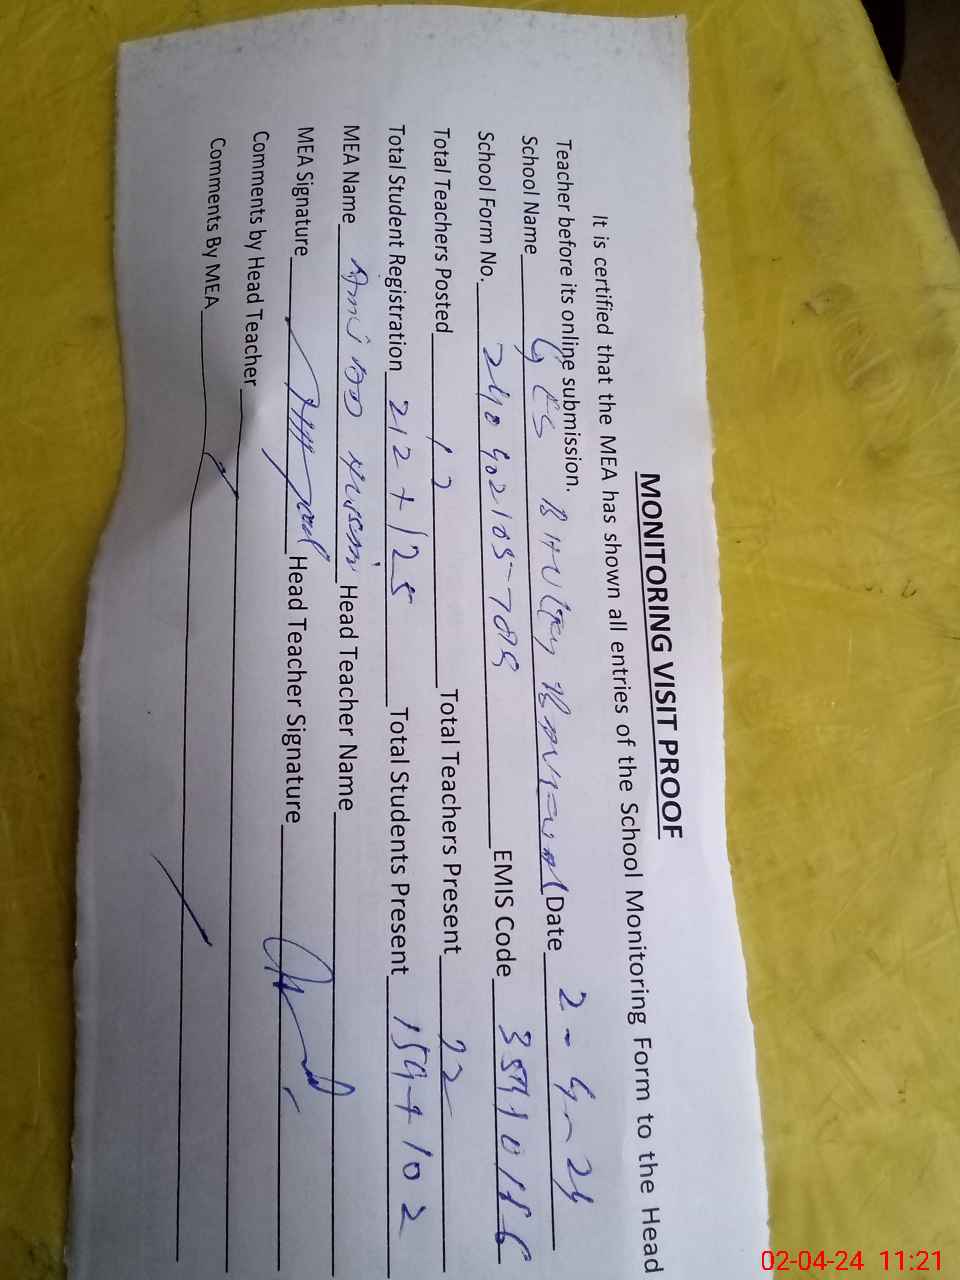 MONITORING VISIT PROOF
It is certified that the MEA has shown all entries of the School Monitoring Form to the Head
Teacher before its online submission.
School Name GES Date 2-4-24
School Form No. EMIS Code
Total Teachers Posted 12 Total Teachers Present 12
Total Student Registration 212 + 125 Total Students Present 159 + 102
MEA Name Head Teacher Name
MEA Signature Head Teacher Signature
Comments by Head Teacher
Comments By MEA
02-04-24 11:21